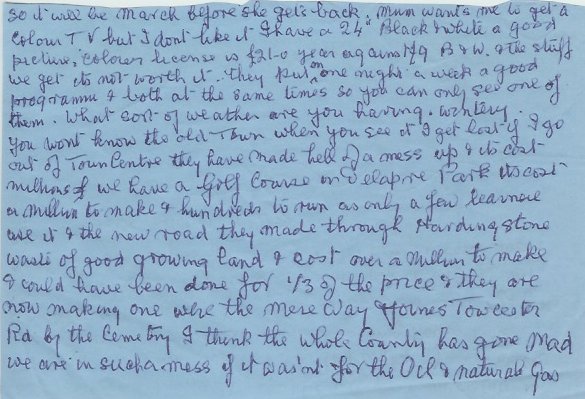 so it will be March before she gets back. Mum wants me to get a
Colour TV but I dont like it I have a 24" Black & white a good
picture, Colour license is £21-0 year against £9 B & W. & the stuff
we get its not worth it. They put on one night a week a good
programm & both at the same times so you can only see one of
them. What sort of weather are you having. wintery
You wont know the old Town when you see it I get lost if I go
out of Town Centre they have made hell of a mess up & its cost
millions & we have a Golf Course in Delapre Park its cost
a million to make & hundreds to run as only a few learners
use it & the new road they made through Hardingstone
waste of good growing land & cost over a million to make
& could have been done for 1/3 of the price & they are
now making one were the Mere Way Joines Towcester
Rd by the Cemetry I think the whole County has gone mad
we are in such a mess if it was'nt for the Oil & natural Gas